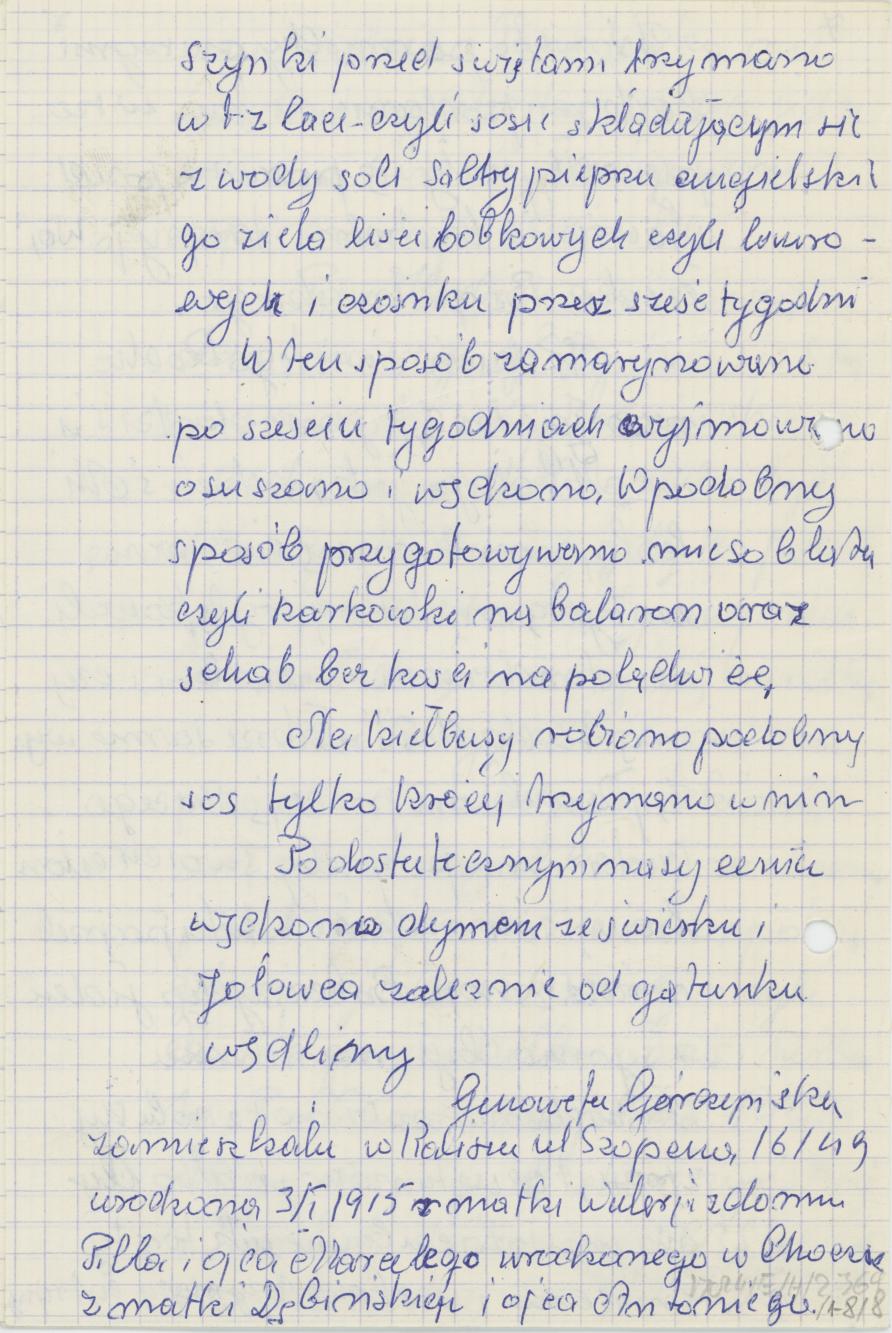 szynki przed świętami trzymano
w t-z lace-czyli sosie składającym się
z wody soli saltry pieprzu angielskie
go ziela liści bobkowych czyli lauro-
wych i czosnku przez sześć tygodni
W ten sposób zamarynowane
po sześciu tygodniach wyjmowano
osuszano i wędzono. W podobny
sposób przygotowywano mięso b
czyli karkówki na baleron oraz
schab bez kości na polędwicę,
Na kiełbasy robiono podobny
sos tylko krócej trzymano w nim
Po dostatecznym nasyceniu
wędzono dymem ze świerku i
Jałowca zależnie od gatunku
wędliny
Genowefa
zamieszkała w Kaliszu ul Szopena 16/49
urodzona 3/I 1915 z matki Walerji z domu
Pilla i ojca urodzonego w Choczu
z matki Dębińskiej i ojca Antoniego.